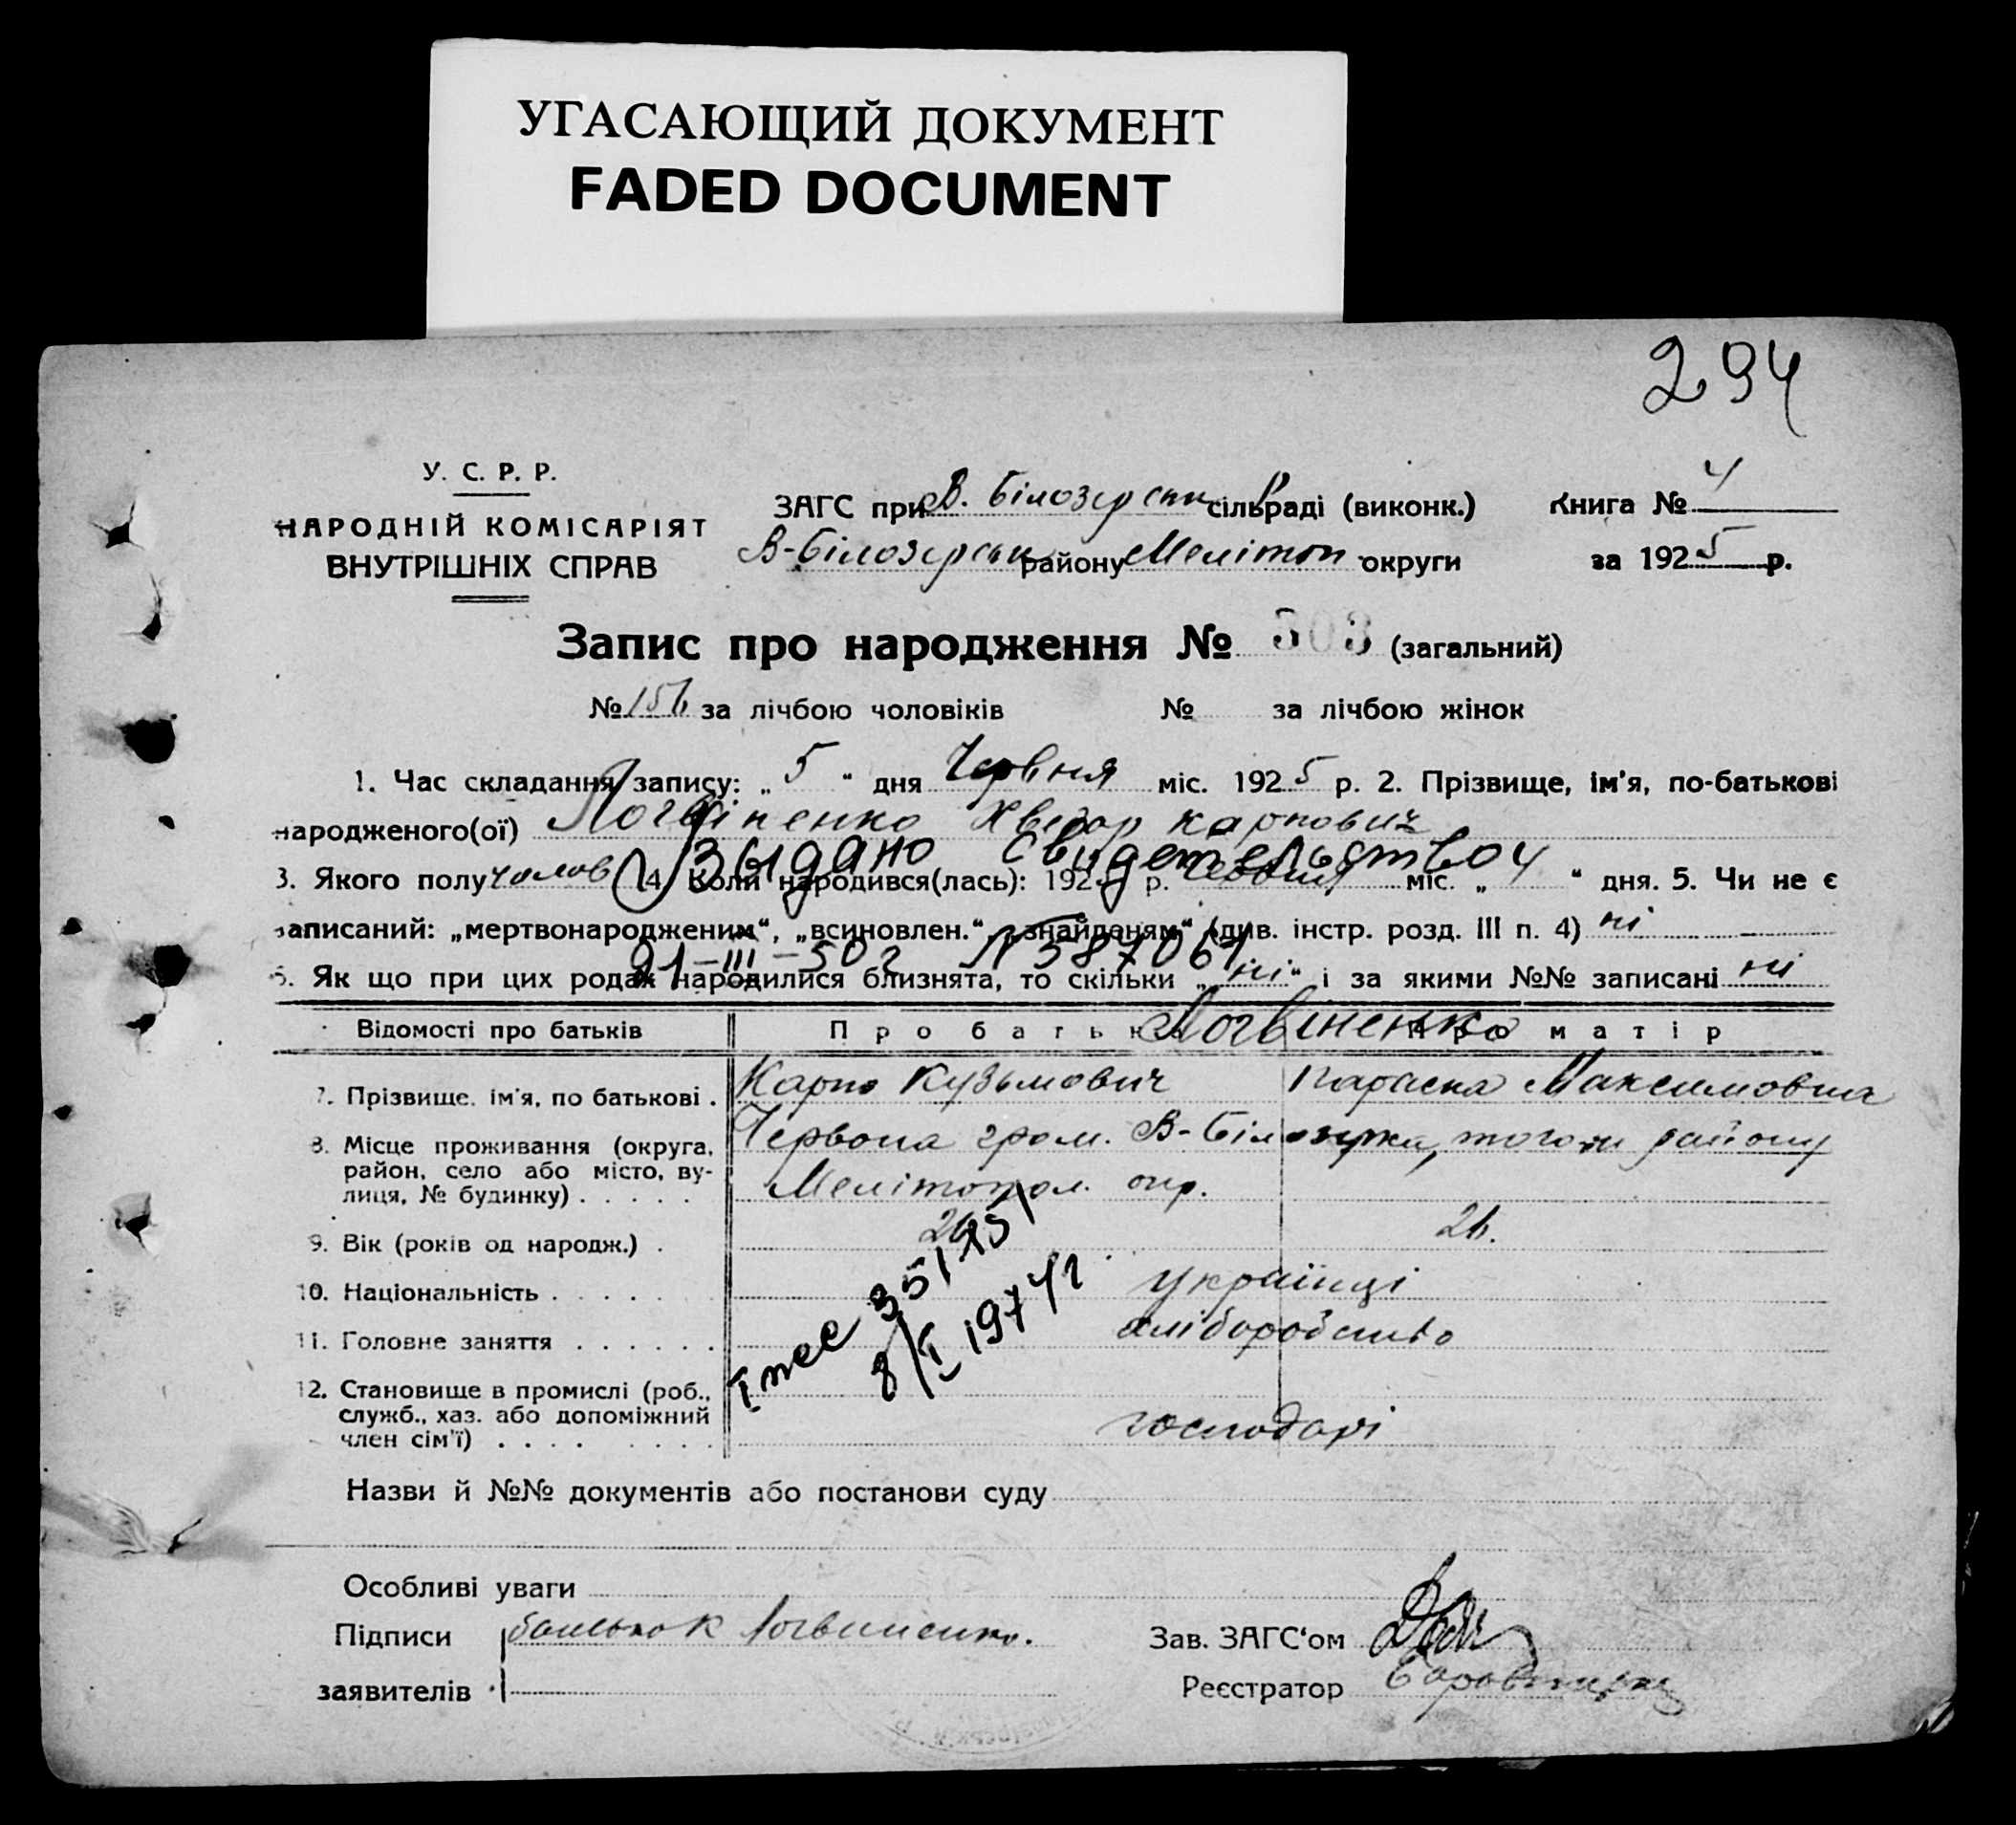 УГАСАЮЩИЙ ДОКУМЕНТ
FADED DOCUMENT
294
У. С. Р. Р.
НАРОДНІЙ КОМІСАРІЯТ
ВНУТРІШНІХ СПРАВ
ЗАГС при В. Білозерськ сільраді (виконк.)
В-Білозерськ району Мелітоп округи
Книга № 4
за 1925 р.
Запис про народження № 503 (загальний)
№ за лічбою чоловіків № за лічбою жінок
1. Час складання запису: „ 5 “ дня Червня міс. 1925 р. 2. Прізвище, ім'я, по-батькові
народженого(ої) Логвіненко Хведор Карпович
Выдано свидетельство
3. Якого полу чолов 4. Коли народився(лась): 1925 р. Червня міс. „ 4 “ дня. 5. Чи не є
записаний: „мертвонародженим“, „всиновлен.“, „знайденям“ (див. інстр. розд. III п. 4) ні
21-III-50 г N 587061
6. Як що при цих родах народилися близнята, то скільки „ ні “ і за якими №№ записані ні
Відомості про батьків Про батька Про матір
Логвіненко
7. Прізвище, ім'я, по батькові . Карпо Кузьмович Параска Максимовна
8. Місце проживання (округа, Червона гром. В-Білозірка, того-ж району
район, село або місто, ву-
лиця, № будинку) . . . . . Мелітопол. окр.
9. Вік (років од народж.) . 26 26.
10. Національність . . . . . українці
11. Головне заняття . . . . . . хліборобство
8/I 1974г
12. Становище в промислі (роб.,
служб., хаз. або допоміжний
член сім'ї) . . . . . . . . господарі
Назви й №№ документів або постанови суду
Особливі уваги
Підписи батько К Логвиненко.
заявителів
Зав. ЗАГС‘ом
Реєстратор